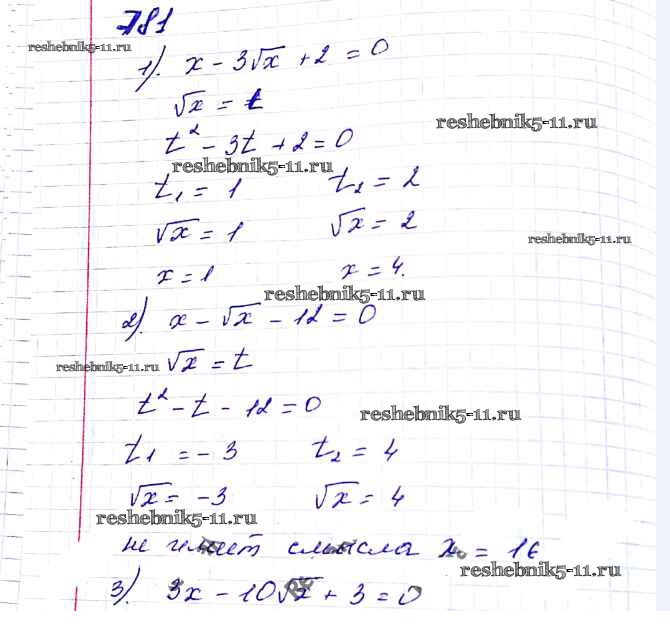 781
reshebnik5-11.ru
1). x - 3√x + 2 = 0
√x = t
reshebnik5-11.ru
t² - 3t + 2 = 0
reshebnik5-11.ru
t₁ = 1 t₂ = 2
√x = 1 √x = 2
reshebnik5-11.ru
x = 1 x = 4.
reshebnik5-11.ru
2). x - √x - 12 = 0
reshebnik5-11.ru √x = t
t² - t - 12 = 0
reshebnik5-11.ru
t₁ = -3 t₂ = 4
√x = -3 √x = 4
reshebnik5-11.ru
не имеет смысла x = 16
reshebnik5-11.ru
3). 3x - 10√x + 3 = 0